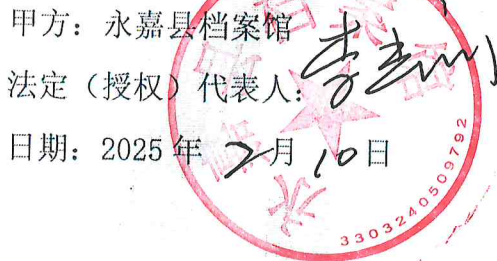 甲方：永嘉县档案馆
法定（授权）代表人：
日期：2025年 2月 10日
3303240509792